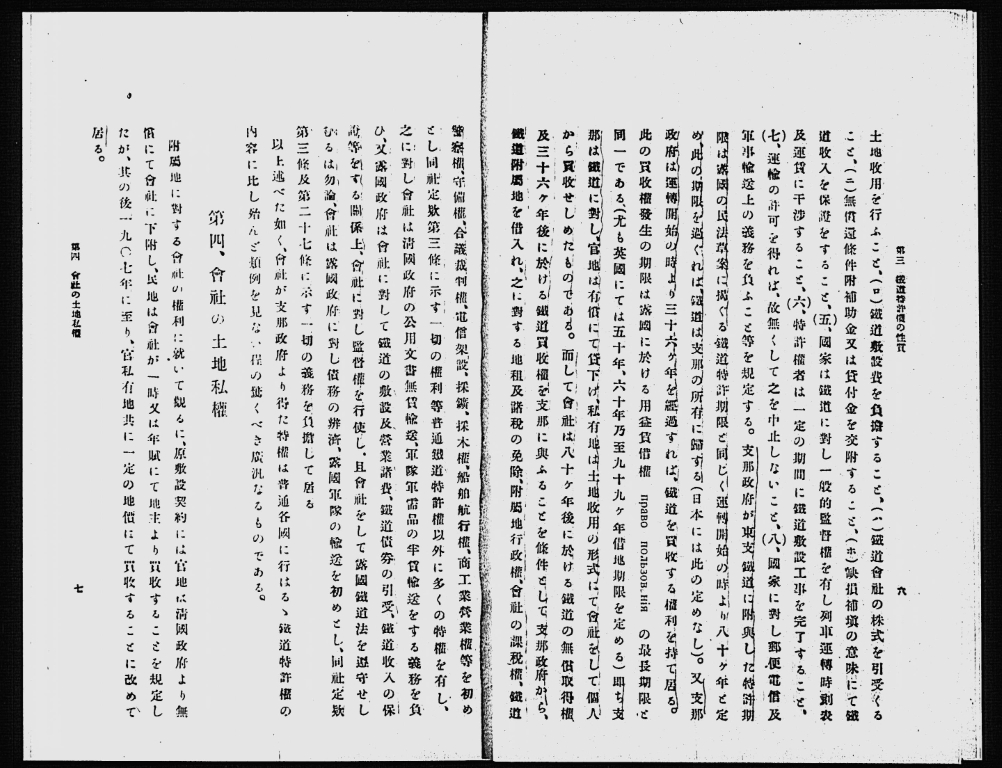 第三 鐵道特許權の性質
六
土地收用を行ふこと、(ロ)鐵道敷設費を負擔すること、(ハ)鐵道會社の株式を引受くる
こと、(ニ)無償還條件附補助金又は貸付金を交附すること、(ホ)缺損補塡の意味にて鐵
道收入を保證をすること、(五、國家は鐵道に對し一般的監督權を有し列車運轉時刻表
及運賃に干涉すること、(六、特許權者は一定の期間に鐵道敷設工事を完了すること、
(七、運輸の許可を得れば、故無くして之を中止しないこと、(八、國家に對し郵便電信及
軍事輸送上の義務を負ふこと等を規定する。支那政府が東支鐵道に附與した特許期
限は露國の民法草案に揭ぐる鐵道特許期限と同じく運轉開始の時より八十ヶ年と定
め、此の期限を過ぐれば、鐵道は支那の所有に歸する(日本には此の定めなし)。又支那
政府は運轉開始の時より三十六ヶ年を經過すれば、鐵道を買收する權利を持て居る。
此の買收權發生の期限は露國に於ける用益賃借權 право пользов. нія の最長期限と
同一である(尤も英國にては五十年、六十年乃至九十九ヶ年借地期限を定める)卽ち支
那は鐵道に對し、官地は有償にて貸下げ、私有地は土地收用の形式にて會社をして個人
から買收せしめたものである。而して會社は八十ヶ年後に於ける鐵道の無償取得權
及三十六ヶ年後に於ける鐵道買收權を支那に與ふることを條件として支那政府から、
鐵道附屬地を借入れ、之に對する地租及諸稅の免除、附屬地行政權、會社の課稅權、鐵道
警察權、守備權、合議裁判權、電信架設、採鑛、採木權、船舶航行權、商工業營業權等を初め
とし同社定款第三條に示す一切の權利等普通鐵道特許權以外に多くの特權を有し、
之に對し會社は淸國政府の公用文書無賃輸送、軍隊軍需品の半賃輸送をする義務を負
ひ、又露國政府は會社に對して鐵道の敷設及營業諸費、鐵道債劵の引受、鐵道收入の保
證等をする關係上、會社に對し監督權を行使し、且會社をして露國鐵道法を遵守せし
むるは勿論、會社は露國政府に對し債務の辨濟、露國軍隊の輸送を初めとし、同社定款
第三條及第二十七條に示す一切の義務を負擔して居る
以上述べた如く、會社が支那政府より得た特權は普通各國に行はるゝ鐵道特許權の
內容に比し殆んど類例を見ない程の驚くべき廣汎なるものである。
第四、會社の土地私權
附屬地に對する會社の權利に就いて觀るに、原敷設契約には官地は淸國政府より無
償にて會社に下附し、民地は會社が一時又は年賦にて地主より買收することを規定し
たが、其の後一九〇七年に至り、官私有地共に一定の地價にて買收することに改めて
居る。
第四 會社の土地私權
七